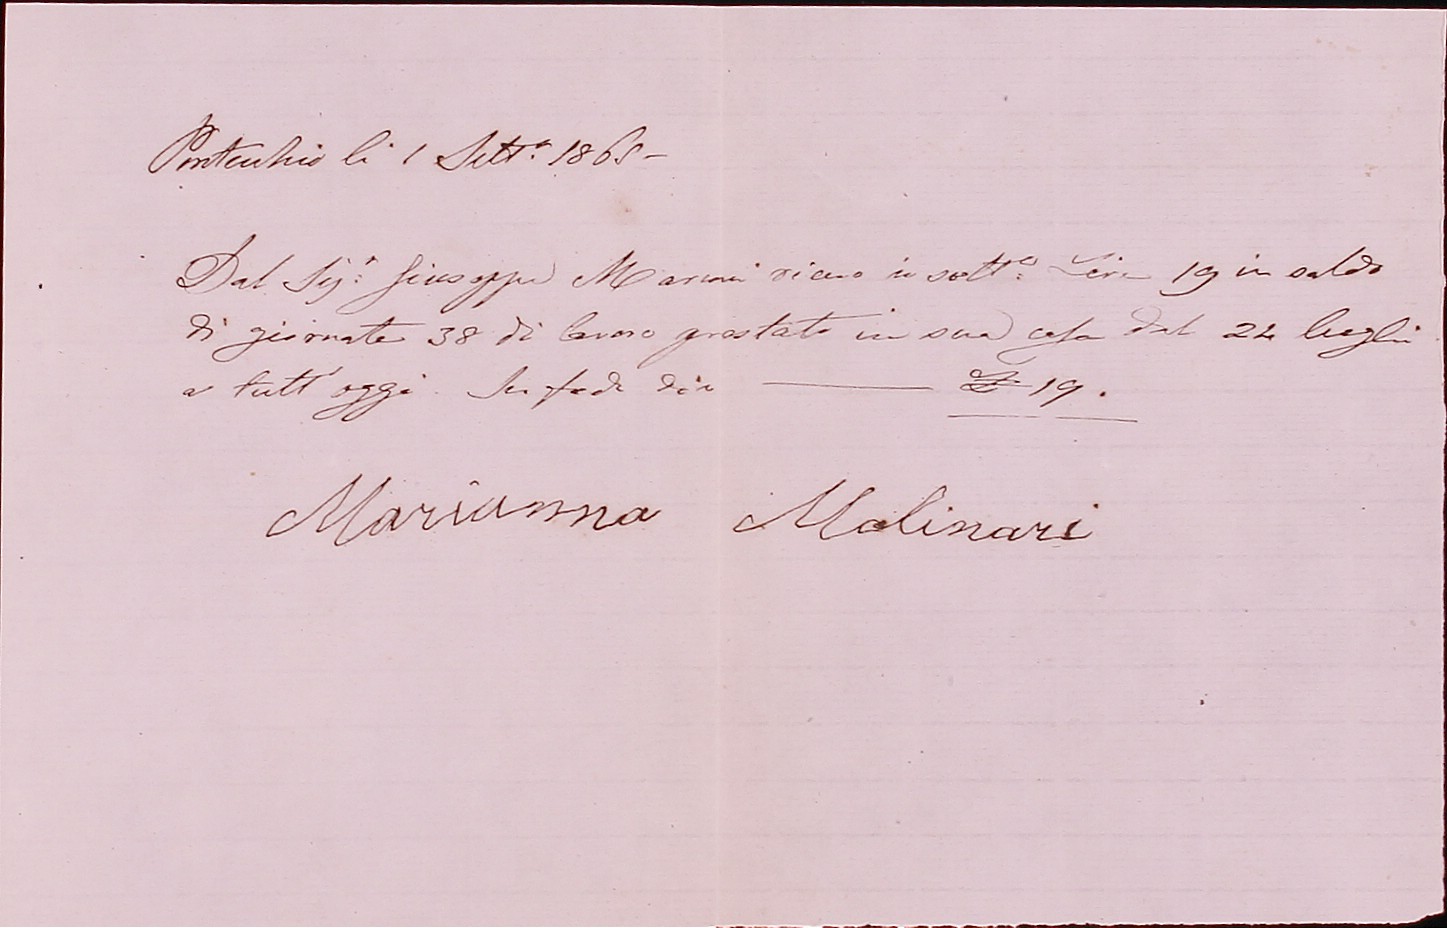 Pontecchio li 1 Settᵉ 1865 –
Dal Sigʳ Giuseppe Marconi ricevo io sottᵃ Lire 19 in saldo
di giornate 38 di lavoro prestato in sua casa dal 24 luglio
a tutt'oggi. In fede dico — £ 19.
Marianna Molinari